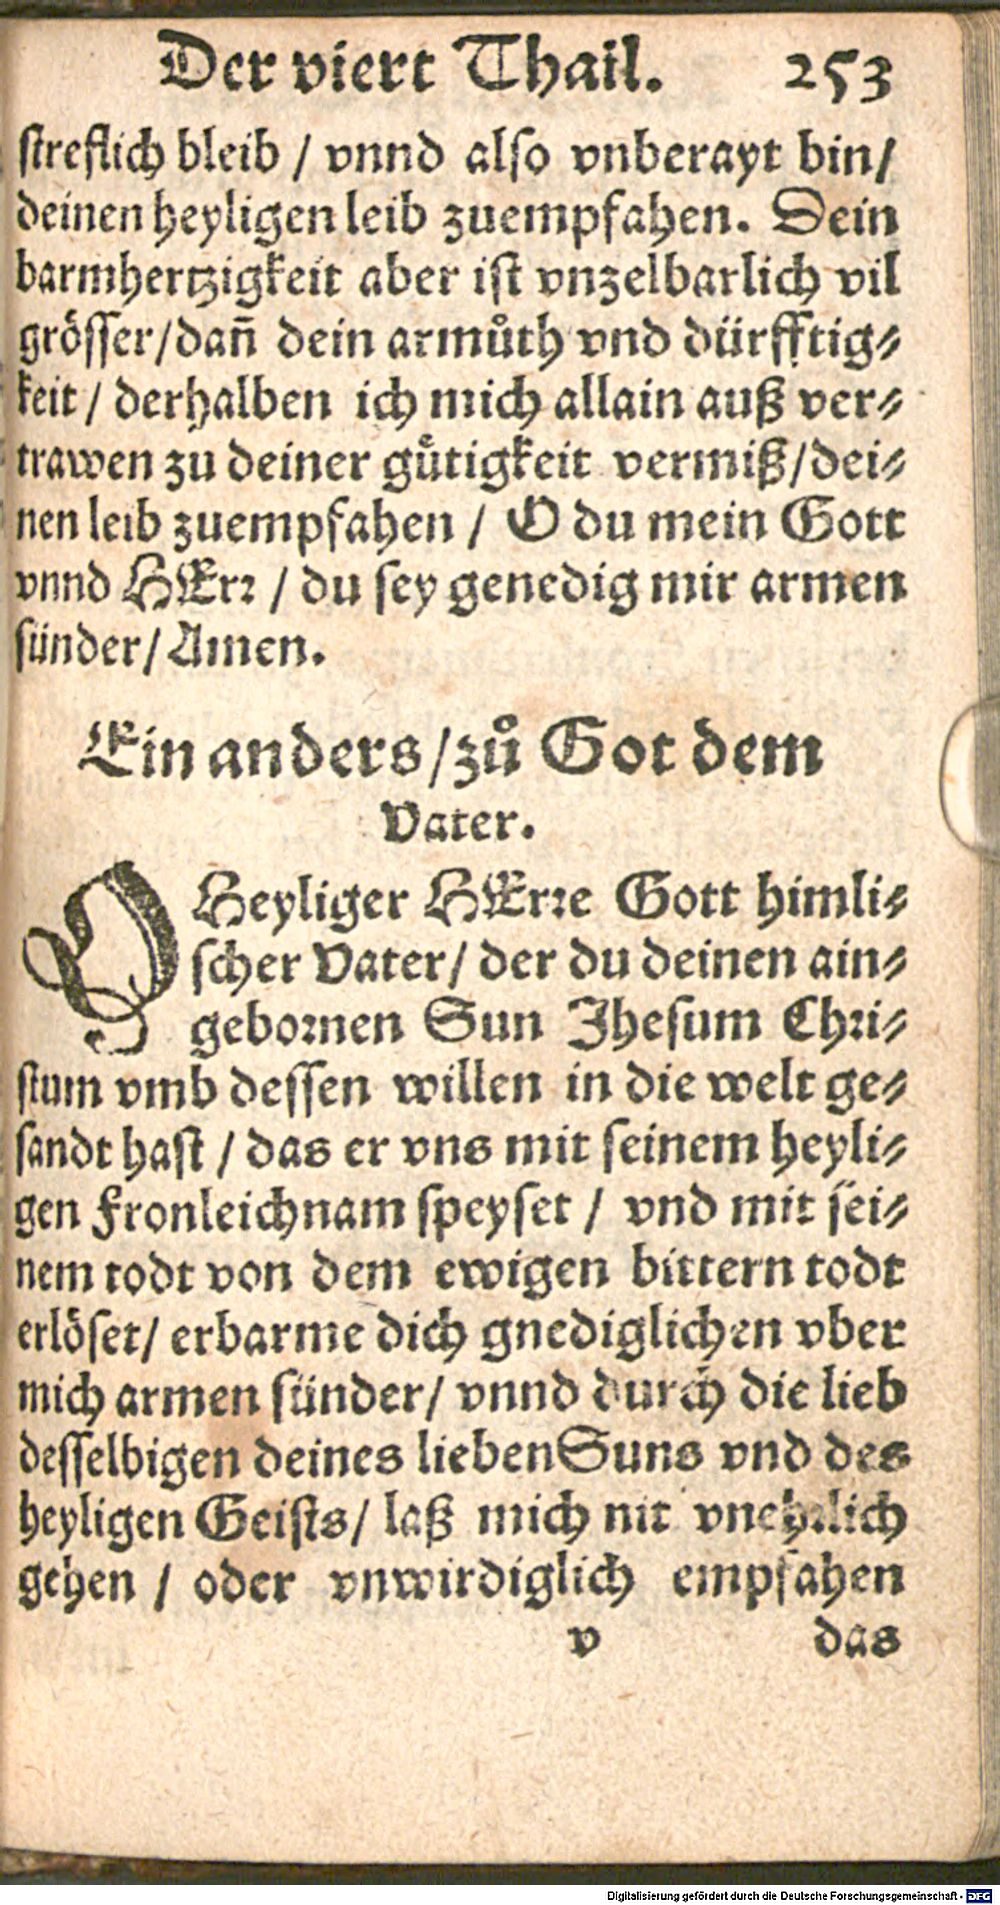 Der viert Thail. 253
streflich bleib / vnnd also vnberayt bin/
deinen heyligen leib zuempfahen. Dein
barmhertzigkeit aber ist vnzelbarlich vil
grösser/dañ dein armůth vnd dürfftig⸗
keit / derhalben ich mich allain auß ver⸗
trawen zu deiner gůtigkeit vermiß/dei⸗
nen leib zuempfahen / O du mein Gott
vnnd HErr / du sey genedig mir armen
sünder/ Amen.
Ein anders/zů Got dem
Vater.
O Heyliger HErre Gott himli⸗
scher Vater/ der du deinen ain⸗
gebornen Sun Jhesum Chri⸗
stum vmb dessen willen in die welt ge⸗
sandt hast / das er vns mit seinem heyli⸗
gen Fronleichnam speyset / vnd mit sei⸗
nem todt von dem ewigen bittern todt
erlöset/ erbarme dich gnediglichen vber
mich armen sünder/ vnnd durch die lieb
desselbigen deines lieben Suns vnd des
heyligen Geists/ laß mich nit vnehrlich
gehen / oder vnwirdiglich empfahen
v das
Digitalisierung gefördert durch die Deutsche Forschungsgemeinschaft - DFG